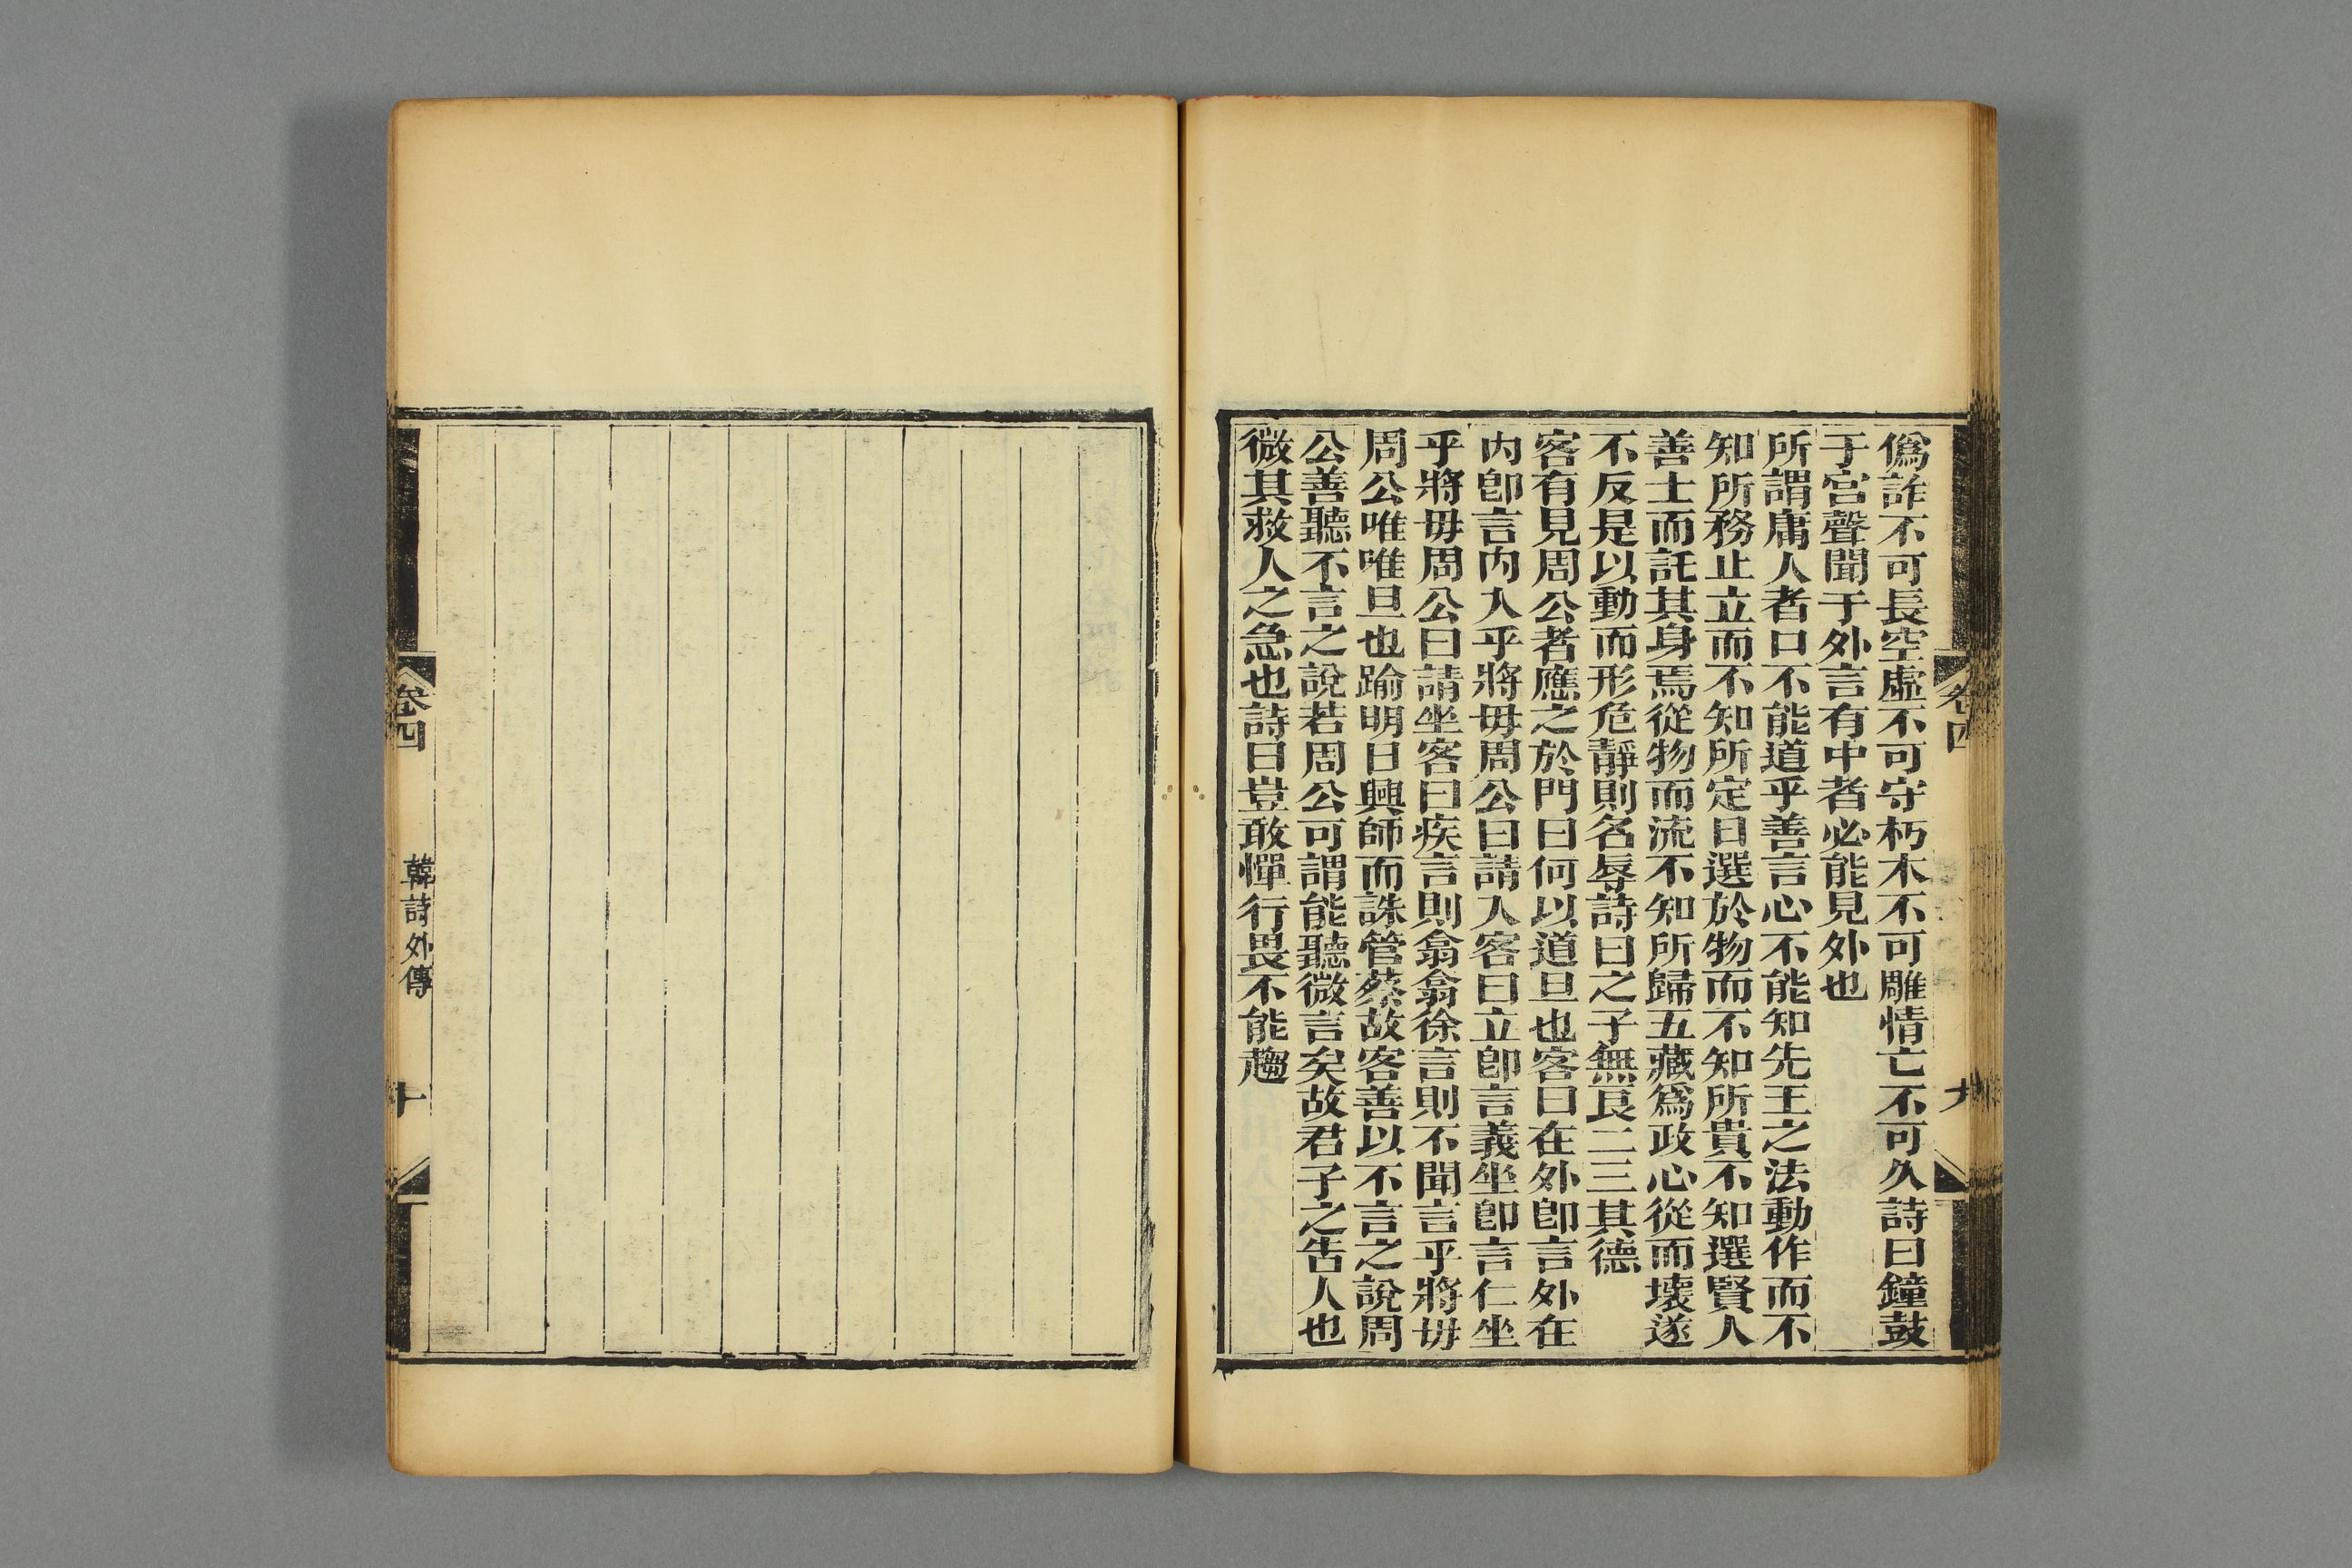 卷四
九
僞詐不可長空虛不可守朽木不可雕情亡不可久詩曰鐘鼓
于宮聲聞于外言有中者必能見外也
所謂庸人者口不能道乎善言心不能知先王之法動作而不
知所務止立而不知所定日選於物而不知所貴不知選賢人
善士而託其身焉從物而流不知所歸五藏爲政心從而壞遂
不反是以動而形危靜則名辱詩曰之子無良二三其德
客有見周公者應之於門曰何以道旦也客曰在外卽言外在
內卽言內入乎將毋周公曰請入客曰立卽言義坐卽言仁坐
乎將毋周公曰請坐客曰疾言則翕翕徐言則不聞言乎將毋
周公唯唯旦也踰明日興師而誅管蔡故客善以不言之說周
公善聽不言之說若周公可謂能聽微言矣故君子之告人也
微其救人之急也詩曰豈敢憚行畏不能趨
卷四
韓詩外傳
十